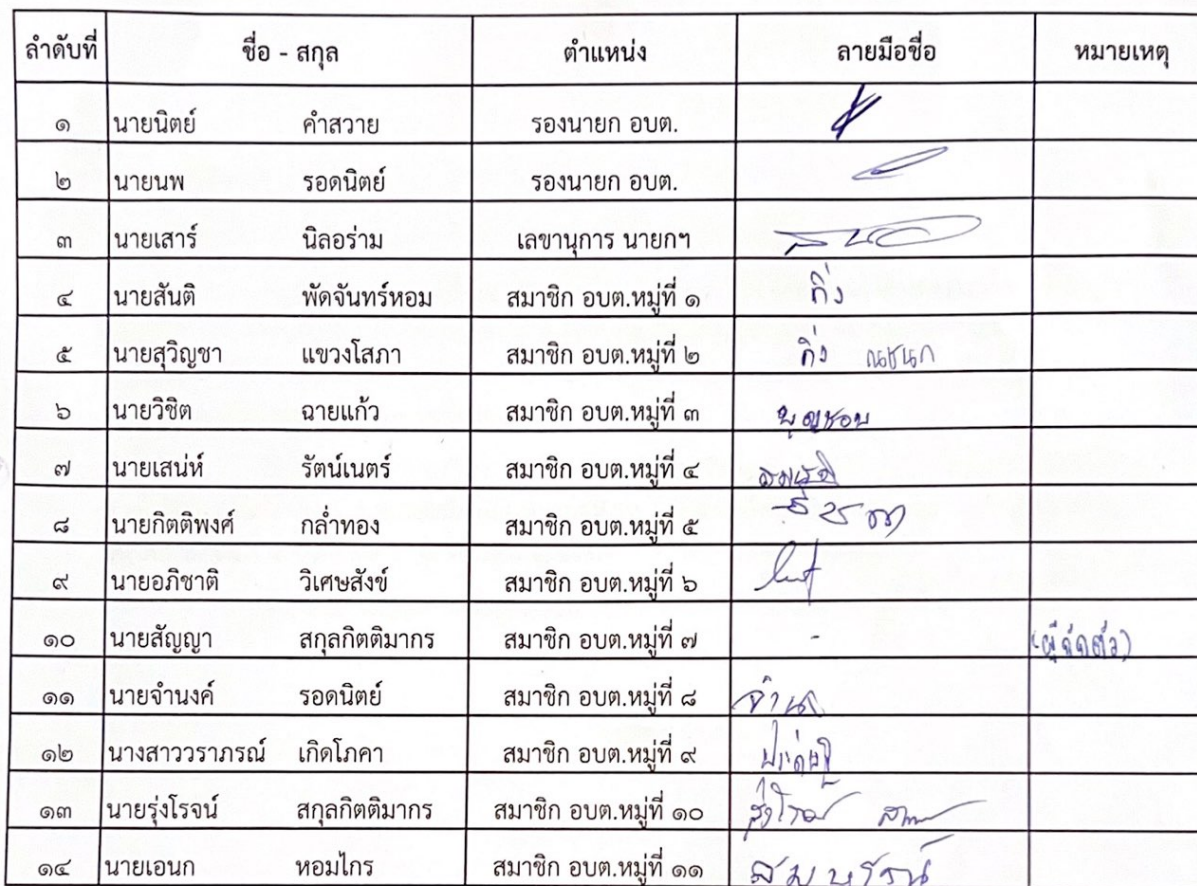 ลำดับที่ ชื่อ - สกุล ตำแหน่ง ลายมือชื่อ หมายเหตุ
๑ นายนิตย์ คำสวาย รองนายก อบต.
๒ นายนพ รอดนิตย์ รองนายก อบต.
๓ นายเสาร์ นิลอร่าม เลขานุการ นายกฯ
๔ นายสันติ พัดจันทร์หอม สมาชิก อบต.หมู่ที่ ๑
๕ นายสุวิญชา แขวงโสภา สมาชิก อบต.หมู่ที่ ๒
๖ นายวิชิต ฉายแก้ว สมาชิก อบต.หมู่ที่ ๓
๗ นายเสน่ห์ รัตน์เนตร์ สมาชิก อบต.หมู่ที่ ๔
๘ นายกิตติพงศ์ กล่ำทอง สมาชิก อบต.หมู่ที่ ๕
๙ นายอภิชาติ วิเศษสังข์ สมาชิก อบต.หมู่ที่ ๖
๑๐ นายสัญญา สกุลกิตติมากร สมาชิก อบต.หมู่ที่ ๗ -
๑๑ นายจำนงค์ รอดนิตย์ สมาชิก อบต.หมู่ที่ ๘
๑๒ นางสาววราภรณ์ เกิดโภคา สมาชิก อบต.หมู่ที่ ๙
๑๓ นายรุ่งโรจน์ สกุลกิตติมากร สมาชิก อบต.หมู่ที่ ๑๐
๑๔ นายเอนก หอมไกร สมาชิก อบต.หมู่ที่ ๑๑